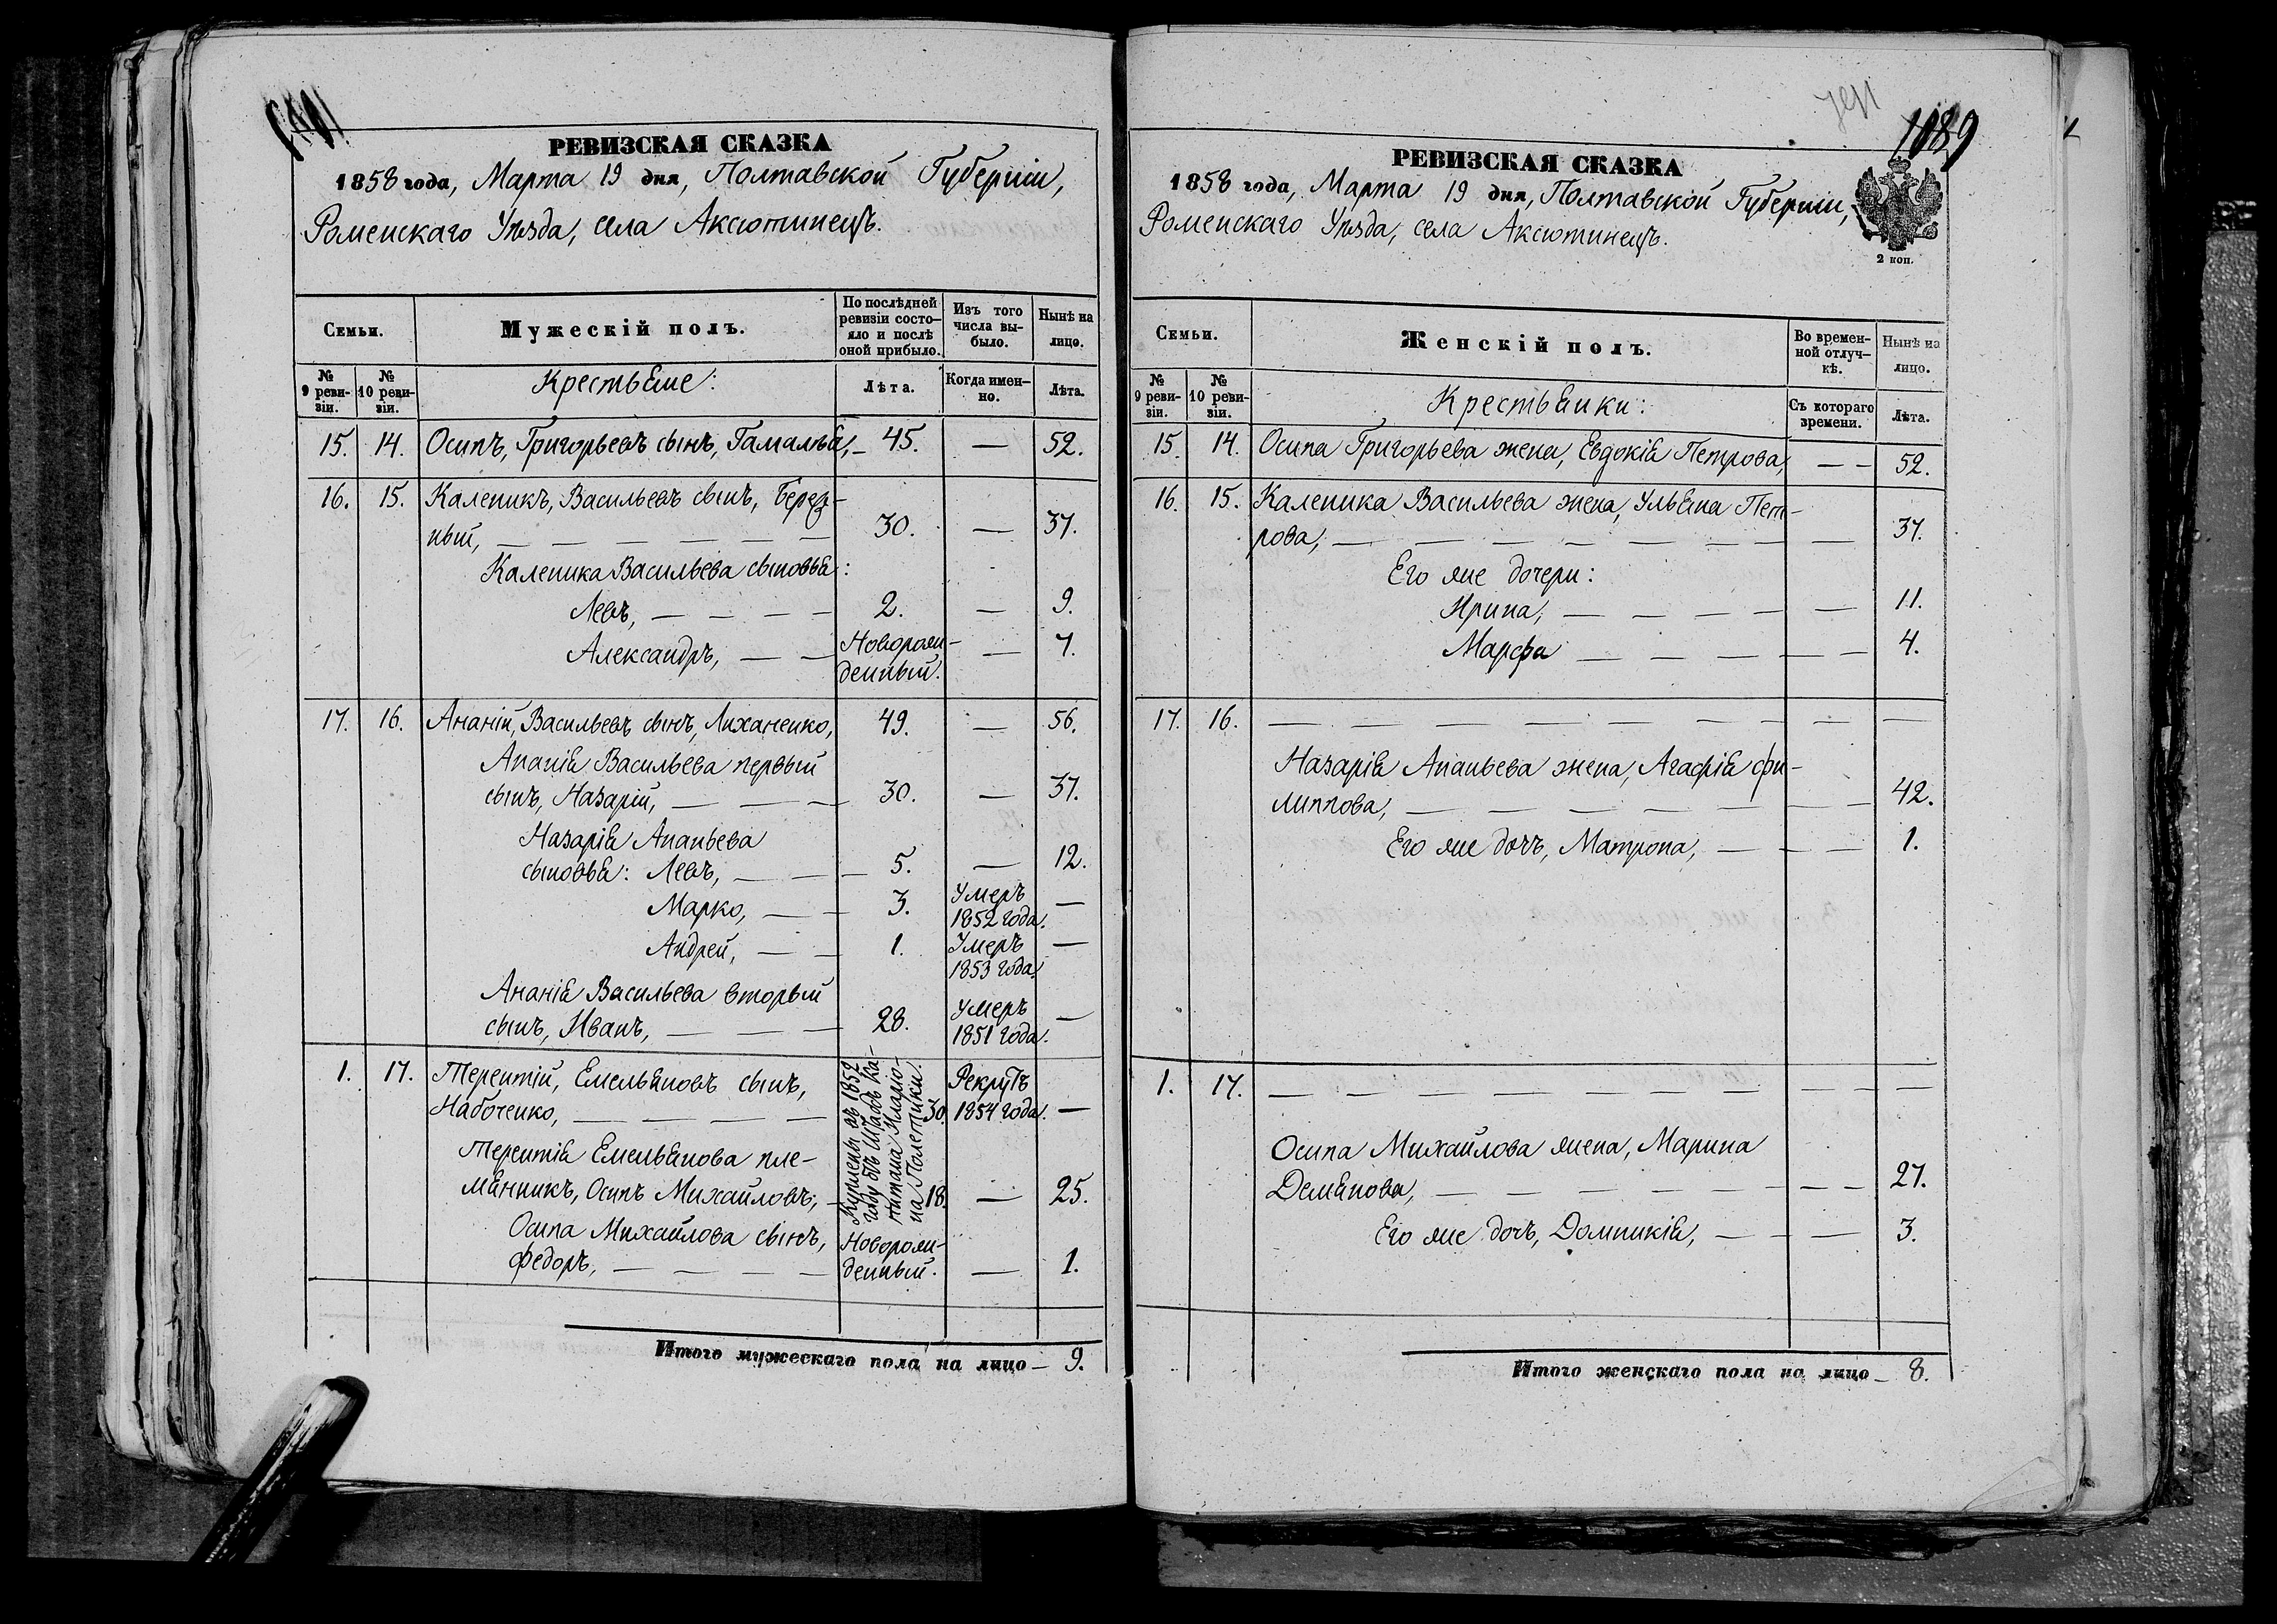 РЕВИЗСКАЯ СКАЗКА
1858 года, Марта 19 дня, Полтавской Губерніи,
Роменскаго Уѣзда, села Аксютинецъ.
Семьи.
Мужескій полъ.
По послѣдней ревизіи состояло и послѣ оной прибыло.
Изъ того числа выбыло.
Нынѣ на лицо.
№ 9 ревизіи.
№ 10 ревизіи.
Крестьяне:
Лѣта.
Когда именно.
Лѣта.
15. 14. Осипъ, Григорьевъ сынъ, Гамалѣя, — 45. — 52.
16. 15. Каленикъ, Васильевъ сынъ, Берез-
ный, — — — — — — 30. — 37.
Каленика Васильева сыновья:
Левъ, — — — — 2. — 9.
Александръ, — — Новорож-
денный. — 7.
17. 16. Ананій, Васильевъ сынъ, Лиханенко, 49. — 56.
Ананія Васильева первый
сынъ, Назарій, — — — 30. — 37.
Назарія Ананьева
сыновья: Левъ, — — — 5. — 12.
Марко, — — 3. Умеръ 1852 года. —
Андрей, — — 1. Умеръ 1853 года. —
Ананія Васильева вторый
сынъ, Иванъ, — — — 28. Умеръ 1851 года. —
1. 17. Терентій, Емельяновъ сынъ,
Набоченко, — — — — 30. Рекрутъ 1854 года. —
Куплены въ 1852
году отъ Штабъ Ка-
питана Иларіо-
на Полетики.
Терентія Емельянова пле-
мянникъ, Осипъ Михайловъ, — 18. — 25.
Осипа Михайлова сынъ,
Федоръ, — — — — Новорож-
денный. — 1.
Итого мужескаго пола на лицо — 9.
1089
РЕВИЗСКАЯ СКАЗКА
1858 года, Марта 19 дня, Полтавской Губерніи,
Роменскаго Уѣзда, села Аксютинецъ.
2 коп.
Семьи.
Женскій полъ.
Во временной отлучкѣ.
Нынѣ на лицо.
№ 9 ревизіи.
№ 10 ревизіи.
Крестьянки:
Съ котораго времени.
Лѣта.
15. 14. Осипа Григорьева жена, Евдокія Петрова, — — 52.
16. 15. Каленика Васильева жена, Ульяна Пет-
рова, — — — — — — — — 37.
Его же дочери:
Ирина, — — — — — 11.
Марфа — — — — — — 4.
17. 16. — — — — — — — — —
Назарія Ананьева жена, Агафія Фи-
липпова, — — — — — — — 42.
Его же дочь, Матрона, — — — 1.
1. 17. — — — — — — — — — —
Осипа Михайлова жена, Марина
Демянова, — — — — — — — — 27.
Его же дочь, Домникія, — — — 3.
Итого женскаго пола на лицо — 8.